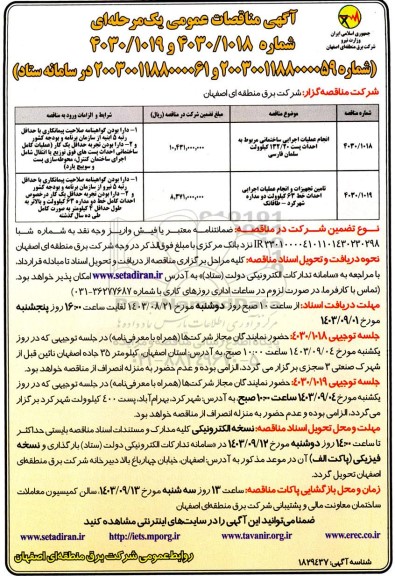 جمهوری اسلامی ایران
وزارت نیرو
شرکت برق منطقه ای اصفهان
آگهی مناقصات عمومی یک‌مرحله‌ای
شماره ۴۰۳۰/۱۰۱۸ و ۴۰۳۰/۱۰۱۹
(شماره ۲۰۰۳۰۰۱۱۸۸۰۰۰۰۵۹ و ۲۰۰۳۰۰۱۱۸۸۰۰۰۰۶۱ در سامانه ستاد)
شرکت مناقصه‌گزار: شرکت برق منطقه‌ای اصفهان
شماره مناقصه موضوع مناقصه مبلغ تضمین شرکت در مناقصه (ریال) شرایط و الزامات ورود به مناقصه
۴۰۳۰/۱۰۱۸ انجام عملیات اجرایی ساختمانی مربوط به احداث پست ۱۳۲/۲۰ کیلوولت سلمان فارسی ۱۰,۴۳۱,۰۰۰,۰۰۰
۱- دارا بودن گواهینامه صلاحیت پیمانکاری با حداقل رتبه ۵ ابنیه از سازمان برنامه و بودجه کشور
۲- دارا بودن تجربه حداقل یک کار (عملیات کامل ساختمانی احداث پست های فوق توزیع یا انتقال شامل اجرای ساختمان کنترل، محوطه‌سازی پست و سوییچ یارد)
۴۰۳۰/۱۰۱۹ تامین تجهیزات و انجام عملیات اجرایی احداث خط ۶۳ کیلوولت دو مداره شهرکرد – طاقانک ۸,۳۷۱,۰۰۰,۰۰۰
۱- دارا بودن گواهینامه صلاحیت پیمانکاری با حداقل رتبه ۵ نیرو از سازمان برنامه و بودجه کشور
۲- دارا بودن تجربه حداقل یک کار درخصوص احداث کامل خط دو مداره ۶۳ کیلوولت و بالاتر به طول حداقل ۴ کیلومتر به صورت کامل طی ده سال گذشته
نوع تضمین شرکت در مناقصه: ضمانتنامه معتبر یا فیش واریز وجه نقد به شماره شبا
IR ۳۳۰۱۰۰۰۰۴۱۰۱۱۰۱۴۳۰۲۳۰۲۹۸ نزد بانک مرکزی با مبلغ فوق‌الذکر در وجه شرکت برق منطقه‌ای اصفهان
نحوه دریافت و تحویل اسناد مناقصه: کلیه مراحل برگزاری مناقصه از دریافت و تحویل اسناد تا مبادله قرارداد،
با مراجعه به سامانه تدارکات الکترونیکی دولت (ستاد) به آدرس www.setadiran.ir امکان پذیر خواهد بود.
(تماس با کارفرما در صورت لزوم در ساعات اداری روزهای کاری با شماره ۳۶۲۷۷۶۸۷-۰۳۱)
مهلت دریافت اسناد: از ساعت ۱۰ صبح روز دوشنبه مورخ ۱۴۰۳/۰۸/۲۱ لغایت ساعت ۱۶:۰۰ روز پنجشنبه
مورخ ۱۴۰۳/۰۹/۰۱
جلسه توجیهی ۴۰۳۰/۱۰۱۸: حضور نمایندگان مجاز شرکت‌ها (همراه با معرفی‌نامه) در جلسه توجیهی که در روز
یکشنبه مورخ ۱۴۰۳/۰۹/۰۴ ساعت ۱۰:۰۰ صبح به آدرس: استان اصفهان، کیلومتر ۳۵ جاده اصفهان نائین قبل از
شهرک صنعتی ۳ سجزی برگزار می گردد، الزامی بوده و عدم حضور به منزله انصراف از مناقصه خواهد بود.
جلسه توجیهی ۴۰۳۰/۱۰۱۹: حضور نمایندگان مجاز شرکت‌ها (همراه با معرفی‌نامه) در جلسه توجیهی که در روز
یکشنبه مورخ ۱۴۰۳/۰۹/۰۴ ساعت ۱۰:۰۰ صبح به آدرس: شهرکرد، بهرام‌آباد، پست ۴۰۰ کیلوولت شهرکرد برگزار
می گردد، الزامی بوده و عدم حضور به منزله انصراف از مناقصه خواهد بود.
مهلت و محل تحویل اسناد مناقصه: نسخه الکترونیکی کلیه مدارک و مستندات اسناد مناقصه بایستی حداکثر
تا ساعت ۱۴:۰۰ روز دوشنبه مورخ ۱۴۰۳/۰۹/۱۲ در «سامانه تدارکات الکترونیکی دولت (ستاد) بارگذاری و نسخه
فیزیکی (پاکت الف) آن در موعد مذکور به آدرس: اصفهان، خیابان چهارباغ بالا دبیرخانه شرکت برق منطقه‌ای
اصفهان تحویل گردد.
زمان و محل بازگشایی پاکات مناقصه: ساعت ۱۳ روز سه شنبه مورخ ۱۴۰۳/۰۹/۱۳، سالن کمیسیون معاملات
ساختمان معاونت مالی و پشتیبانی شرکت برق منطقه‌ای اصفهان
ضمنا می‌توانید این آگهی را در سایت‌های اینترنتی مشاهده کنید
www.setadiran.ir http://iets.mporg.ir www.tavanir.org.ir www.erec.co.ir
شناسه آگهی: ۱۸۲۹۴۳۷
روابط عمومی شرکت برق منطقه‌ای اصفهان